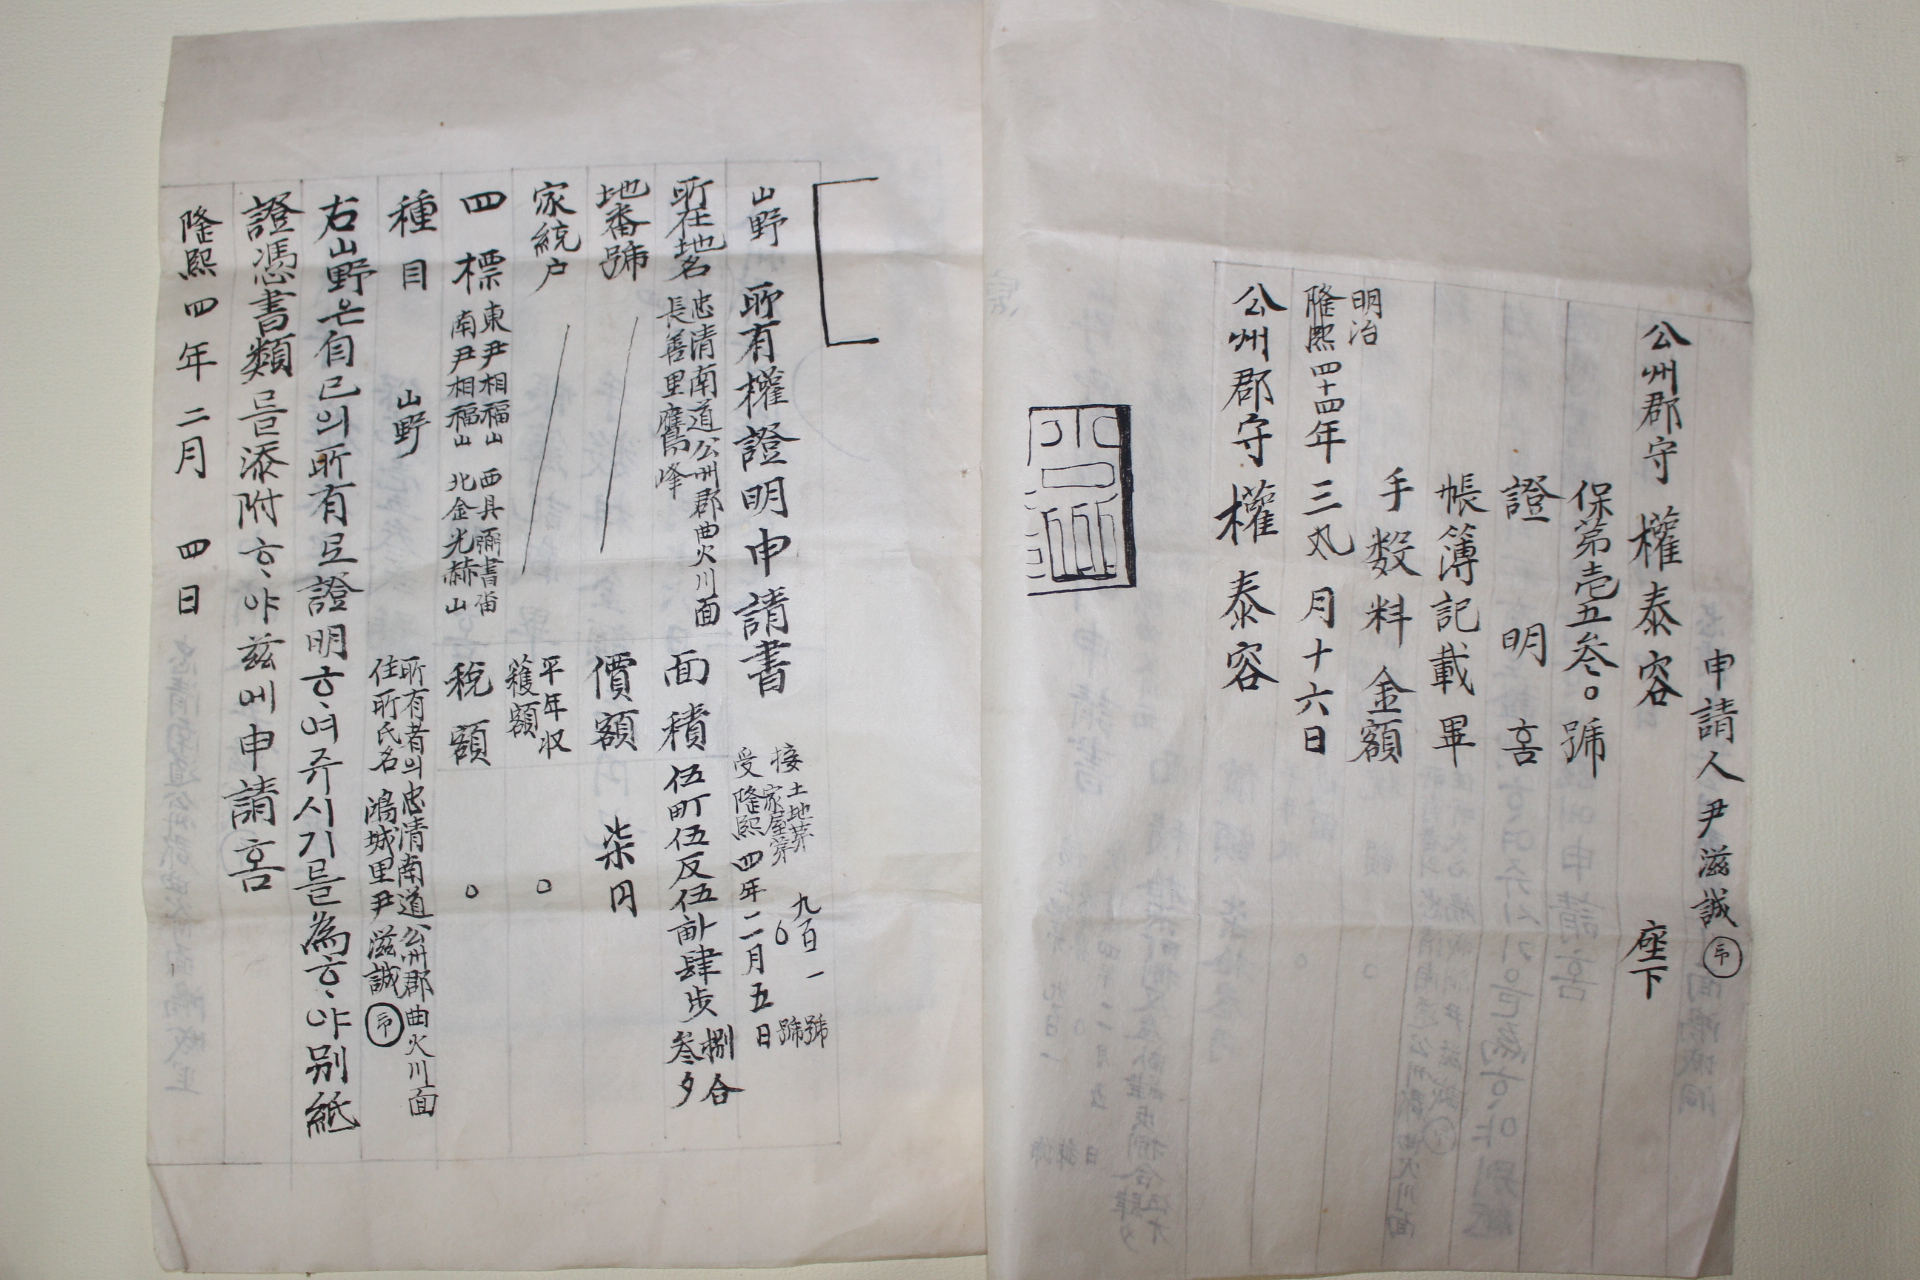 申請人 尹滋誠 印
公州郡守 權泰容 座下
保第壱五叄○號
證明홈
帳簿記載畢
手数料金額
明治
隆熙四十四年 三 月十六日
公州郡守 權泰容
山野 所有權證明申請書
接 土地第 九百一 號
家屋第 ○ 號
受隆熙四年二月五日
所在地名 忠清南道公州郡曲火川面
長善里鷹峰
面積 伍町伍反伍畝肆步捌合
叄夕
地番號
價額 柒円
家統户
平年収
穫額 ○
四標 東尹相福山 西具彌書畓
南尹相福山 北金光赫山
稅額 ○
種目 山野
所有者의 忠清南道公州郡曲火川面
住所氏名 鴻城里尹滋誠 印
右山野은自己의所有로證明ᄒᆞ여쥬시기를為ᄒᆞ야別紙
證憑書類를添附ᄒᆞ야玆에申請홈
隆熙四年二月 四日